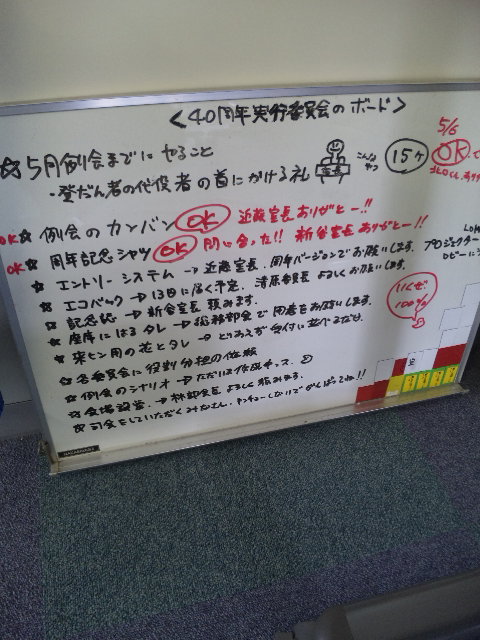 <40周年実行委員会のボード>
☆5月例会までにやること
・登だん者の代役者の首にかける札 こんなやつ 15ヶ 5/6 OK
OK☆ 例会のカンバン OK 近藤室長ありがとー!!
OK☆ 周年記念シャツ OK 間に合った!! 新谷室長ありがとー!!
☆ エントリーシステム→近藤室長.周年バージョンでお願いします. プロジェクター
☆ エコバック→13日に届く予定. 清原委員長よろしくお願いします. ロビーに
☆ 記念誌→新谷室長頼みます.
☆ 座席にはるタレ→総務部会で用意をお願いします. いくぜ 100%
☆ 来ヒン用の花とタレ→とりあえず受付に並べるだけ.
☆ 各委員会に役割分担の依頼
☆ 例会のシナリオ→ただいま作成チュー.
☆ 会場設営.→林部会長よろしく頼みます.
☆ 司会をしていただくみなさん.